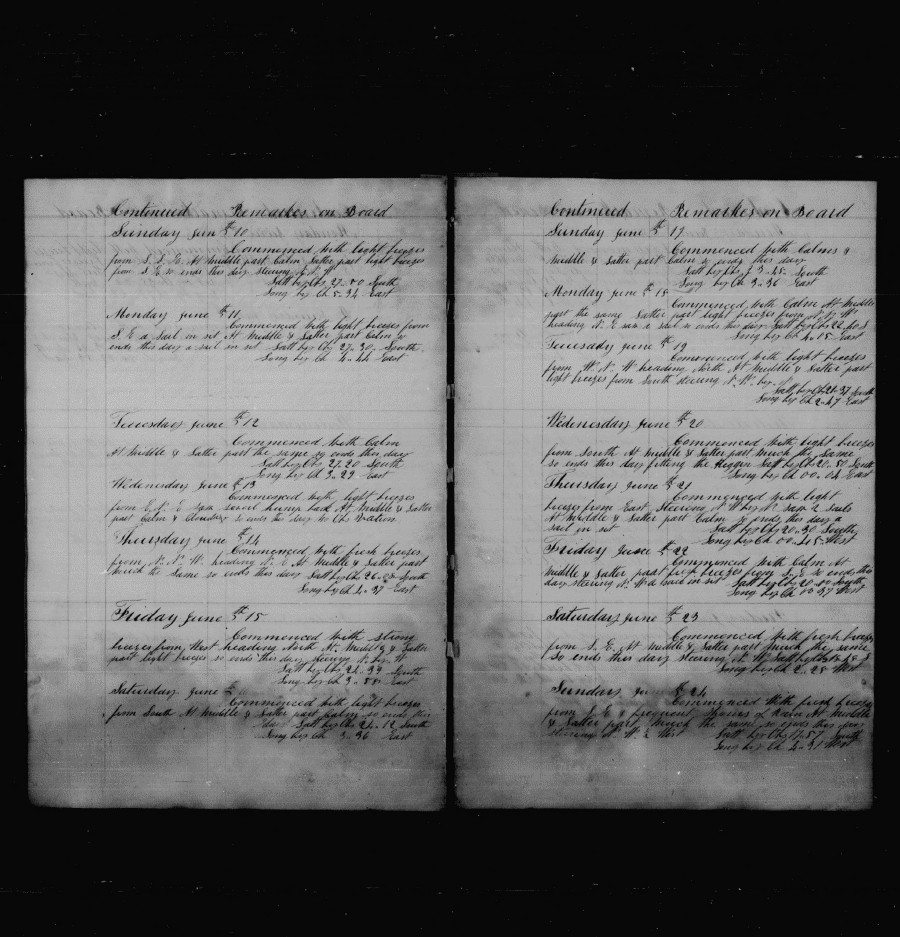 Continued Remarkes on Board
Sunday june th 10
Commenced with light breezes
from S. S. E. At Middle part Calm Latter part light breezes
from S. E. so ends this day steering N. N. W
Latt by Obs 27..00 South
Long by Ch 5..34 East
Monday june th 11
Commenced with light breezes from
S. E a sail in set At Middle & Latter part Calm so
ends this day a sail in set Latt by Obs 27..30 South
Long by Ch 4..44 East
Tuuesday june th 12
Commenced with Calm
At Middle & Latter part the same so ends this day
Latt by Obs 27..20 South
Long by Ch 3..29 East
Wednesday june th 13
Commenced with light breezes
from E. N. E saw hump back At Middle & Latter
part Calm & Cloudy so ends this day no Obs
Thursday june th 14
Commenced with fresh breezes
from N. N. W. heading N. E At Middle & Latter part
much the Same so ends this day Latt by Obs 26..05 South
Long by Ch 4..37 East
Friday june th 15
Commenced with strong
breezes from West heading North At Middle & Latter
part light breezes so ends this day steering N. by W
Latt by Obs 24..39 South
Long by Ch 3..58 East
Saturday june th
Commenced with light breezes
from South At Middle & Latter part Calm so ends this
day Latt by Obs 24..18 South
Long by Ch 3..36 East
Continued Remarkes on Board
Sunday june th 17
Commenced with Calmes &
Middle & Latter part Calm so ends this day
Latt by Obs 3..45 South
Long by Ch 3..36 East
Monday june th 18
Commenced with Calm At Middle
part the same Latter part light breezes from N. N. W.
heading N. E saw a sail so ends this day Latt by Obs 22..40 S
Long by Ch 4..15 East
Tuuesday june th 19
Commenced with light breezes
from W. N. W heading North At Middle & Latter part
light breezes from South steering N. W. by
Latt by Obs 21..37 South
Long by Ch 2..47 East
Wednesday june th 20
Commenced with light breezes
from South At Middle & Latter part much the same
so ends this day fitting the Riggen Latt by Obs 20..50 South
Long by Ch 00..04 East
Thursday june th 21
Commenced with light
breezes from East Steering N. W by N. saw 2 Sails
At Middle & Latter part Calm so ends this day a
sail in set Latt by Obs 20..30 South
Long by Ch 00..45 West
Friday june th 22
Commenced with Calm At
Middle & Latter part fresh breezes from S. E so ends this
day steering N. W a sail in set Latt by Obs 20..00 South
Long by Ch 00..37 West
Saturday june th 23
Commenced with fresh breezes
from S. E. At Middle & Latter part much the same
So ends this day steering N. W. Latt by Obs
Long by Ch 2..25 West
Sunday june th 24
Commenced with fresh breezes
from S. E & frequent of Rain At Middle
& Latter part Much the same so ends this day
steering N. W. ½ West Latt by Obs 17..57 South
Long by Ch 4..31 West